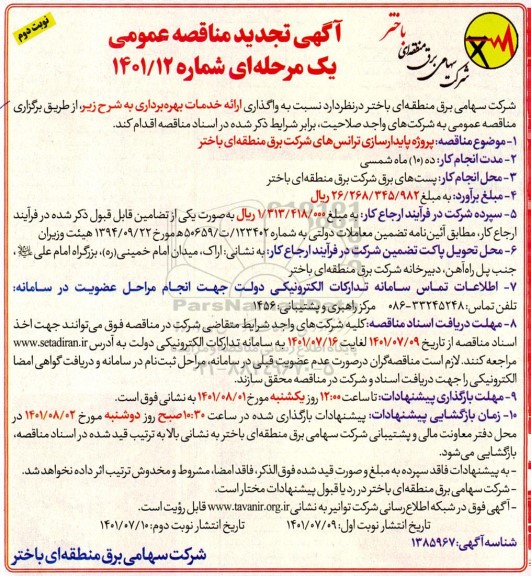 نوبت دوم
آگهی تجدید مناقصه عمومی
یک مرحله‌ای شماره ۱۴۰۱/۱۲
شرکت سهامی برق منطقه‌ای باختر
شرکت سهامی برق منطقه‌ای باختر درنظردارد نسبت به واگذاری ارائه خدمات بهره‌برداری به شرح زیر، از طریق برگزاری
مناقصه عمومی به شرکت‌های واجد صلاحیت، برابر شرایط ذکر شده در اسناد مناقصه اقدام کند.
۱- موضوع مناقصه: پروژه پایدارسازی ترانس‌های شرکت برق منطقه‌ای باختر
۲- مدت انجام کار: ده (۱۰) ماه شمسی
۳- محل انجام کار: پست‌های برق شرکت برق منطقه‌ای باختر
۴- مبلغ برآورد: به مبلغ ۲۶/۲۶۸/۳۴۵/۹۸۲ ریال
۵- سپرده شرکت در فرآیند ارجاع کار: به مبلغ ۱/۳۱۳/۴۱۸/۰۰۰ ریال به‌صورت یکی از تضامین قابل قبول ذکر شده در فرآیند
ارجاع کار، مطابق آئین‌نامه تضمین معاملات دولتی به شماره ۱۲۳۴۰۲/ت۵۰۶۵۹ه مورخ ۱۳۹۴/۰۹/۲۲ هیئت وزیران
۶- محل تحویل پاکت تضمین شرکت در فرآیند ارجاع کار: به نشانی: اراک، میدان امام خمینی(ره)، بزرگراه امام علی ،
جنب پل راه‌آهن، دبیرخانه شرکت برق منطقه‌ای باختر
۷- اطلاعات تماس سامانه تدارکات الکترونیکی دولت جهت انجام مراحل عضویت در سامانه:
تلفن تماس: ۳۳۲۴۵۲۴۸-۰۸۶ مرکز راهبری و پشتیبانی: ۱۴۵۶
۸- مهلت دریافت اسناد مناقصه: کلیه شرکت‌های واجد شرایط متقاضی شرکت در مناقصه فوق می‌توانند جهت اخذ
اسناد مناقصه از تاریخ ۱۴۰۱/۰۷/۰۹ لغایت ۱۴۰۱/۰۷/۱۶ به سامانه تدارکات الکترونیکی دولت به آدرس www.setadiran.ir
مراجعه کنند. لازم است مناقصه‌گران درصورت عدم عضویت قبلی در سامانه، مراحل ثبت‌نام در سامانه و دریافت گواهی امضا
الکترونیکی را جهت دریافت اسناد و شرکت در مناقصه محقق سازند.
۹- مهلت بارگذاری پیشنهادات: تا ساعت ۱۲:۰۰ روز یکشنبه مورخ ۱۴۰۱/۰۸/۰۱ به نشانی فوق است.
۱۰- زمان بازگشایی پیشنهادات: پیشنهادات بارگذاری شده در ساعت ۱۰:۳۰ صبح روز دوشنبه مورخ ۱۴۰۱/۰۸/۰۲ در
محل دفتر معاونت مالی و پشتیبانی شرکت سهامی برق منطقه‌ای باختر به نشانی بالا به ترتیب قید شده در اسناد مناقصه،
بازگشایی می‌شود.
- به پیشنهادات فاقد سپرده به مبلغ و صورت قید شده فوق‌الذکر، فاقد امضا، مشروط و مخدوش ترتیب اثر داده نخواهد شد.
- شرکت سهامی برق منطقه‌ای باختر در رد یا قبول پیشنهادات مختار است.
- آگهی فوق در شبکه اطلاع‌رسانی شرکت توانیر به نشانی www.tavanir.org.ir قابل رؤیت است.
تاریخ انتشار نوبت اول: ۱۴۰۱/۰۷/۰۹ تاریخ انتشار نوبت دوم: ۱۴۰۱/۰۷/۱۰
شناسه آگهی: ۱۳۸۵۹۶۷
شرکت سهامی برق منطقه‌ای باختر